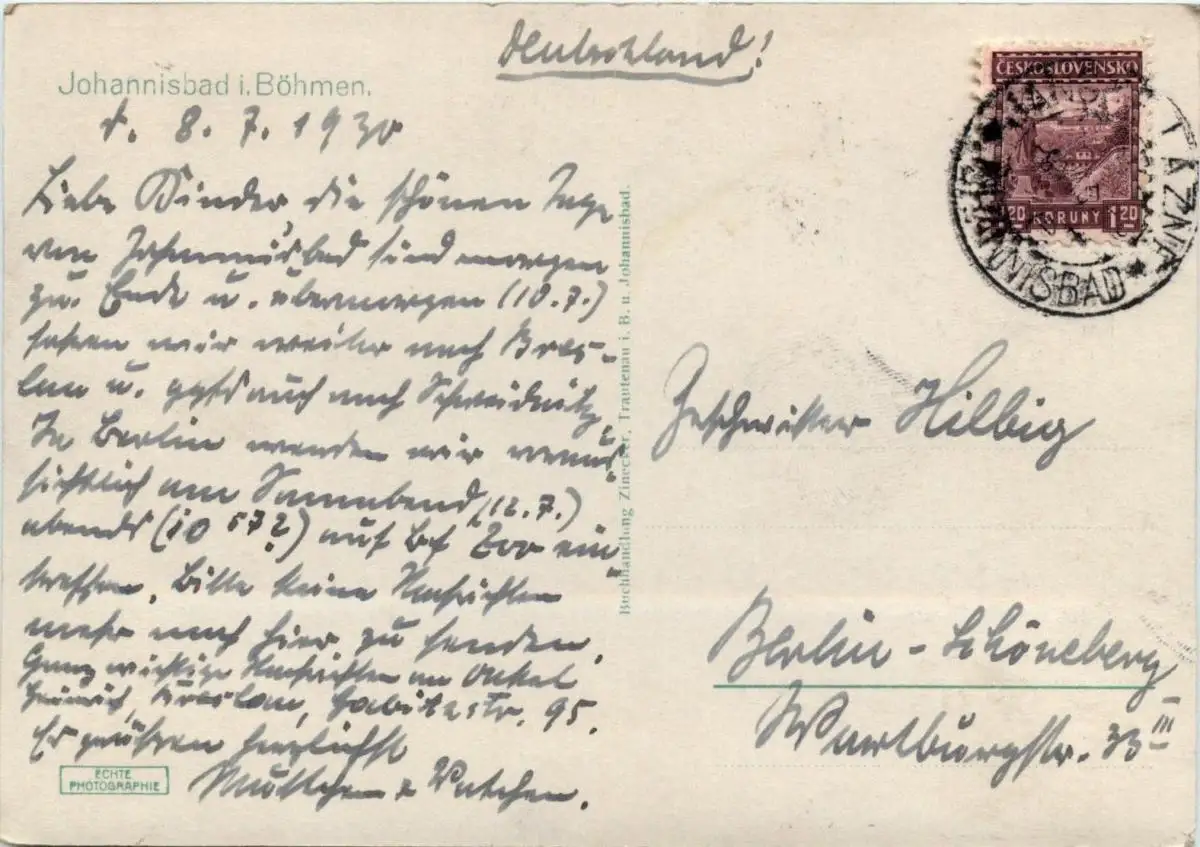 Deutschland!
Johannisbad i. Böhmen.
d. 8. 7. 1930
Liebe Kinder die schönen Tage
von Johannisbad sind morgen
zu Ende u. übermorgen (10.7.)
fahren wir weiter nach Bres-
lau u. auch nach Schweidnitz.
In Berlin werden wir voraus-
sichtlich am Sonnabend (12.7.)
abends (10 57?) auf Bf Zoo ein-
treffen. Bitte keine Nachrichten
mehr nach hier zu senden.
Ganz wichtige Nachrichten an Onkel
Heinrich, Breslau, Gabitzstr. 95.
Es grüßen herzlichst
Muttchen & Vatchen.
ECHTE
PHOTOGRAPHIE
Buchhandlung Zinecker, Trautenau i. B. u. Johannisbad.
ČESKOSLOVENSKO
1.20 KORUNY 1.20
LÁZNĚ
JOHANNISBAD
Geschwister Hilbig
Berlin-Schöneberg
Wartburgstr. 33 III